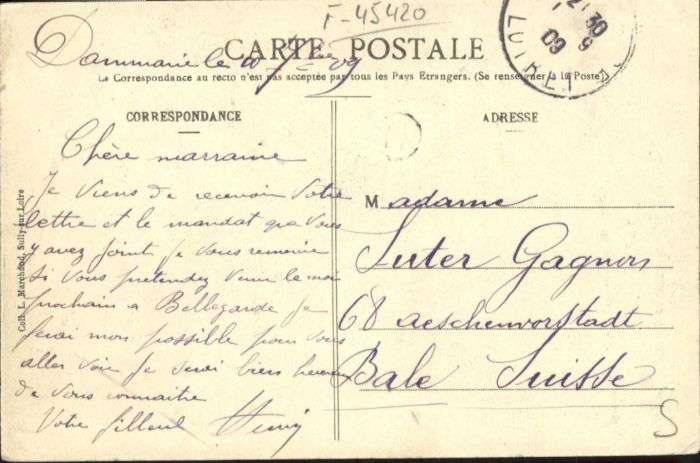 F-45420
Dammarie le 10 7bre 09
CARTE POSTALE
La Correspondance au recto n'est pas acceptée par tous les Pays Etrangers. (Se renseigner à la Poste)
CORRESPONDANCE
Chère marraine
Je viens de recevoir Votre
lettre et le mandat que Vous
y avez Joint Je Vous remercie
Si Vous pretendez Venir le moi
prochain a Bellegarde Je
ferai mon possible pour Vous
aller Voir Je serai bien heureux
de Vous connaitre
Votre filleul Henri
Coll. L. Marchand, Sully-sur-Loire
ADRESSE
Madame
Suter Gagnon
68 aeschenvorstadt
Bale Suisse
S
30
9
09
LOIRET